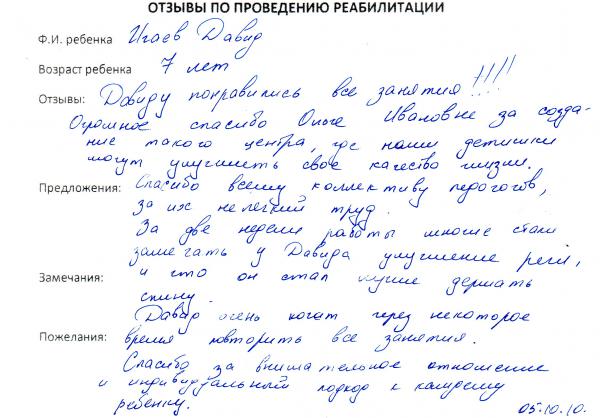 ОТЗЫВЫ ПО ПРОВЕДЕНИЮ РЕАБИЛИТАЦИИ
Ф.И. ребенка Игаев Давид
Возраст ребенка 7 лет
Отзывы: Давиду понравились все занятия!!!!
Огромное спасибо Ольге Ивановне за созда-
ние такого центра, где наши детишки
могут улучшить свое качество жизни.
Предложения: Спасибо всему коллективу педогогов,
за их не легкий труд.
За две недели работы многие стали
замечать у Давида улучшение речи,
Замечания: и что он стал лучше держать
спину.
Давид очень хочет через некоторое
Пожелания: время повторить все занятия.
Спасибо за внимательное отношение
и индивидуальный подход к каждому
ребенку. 05.10.10.